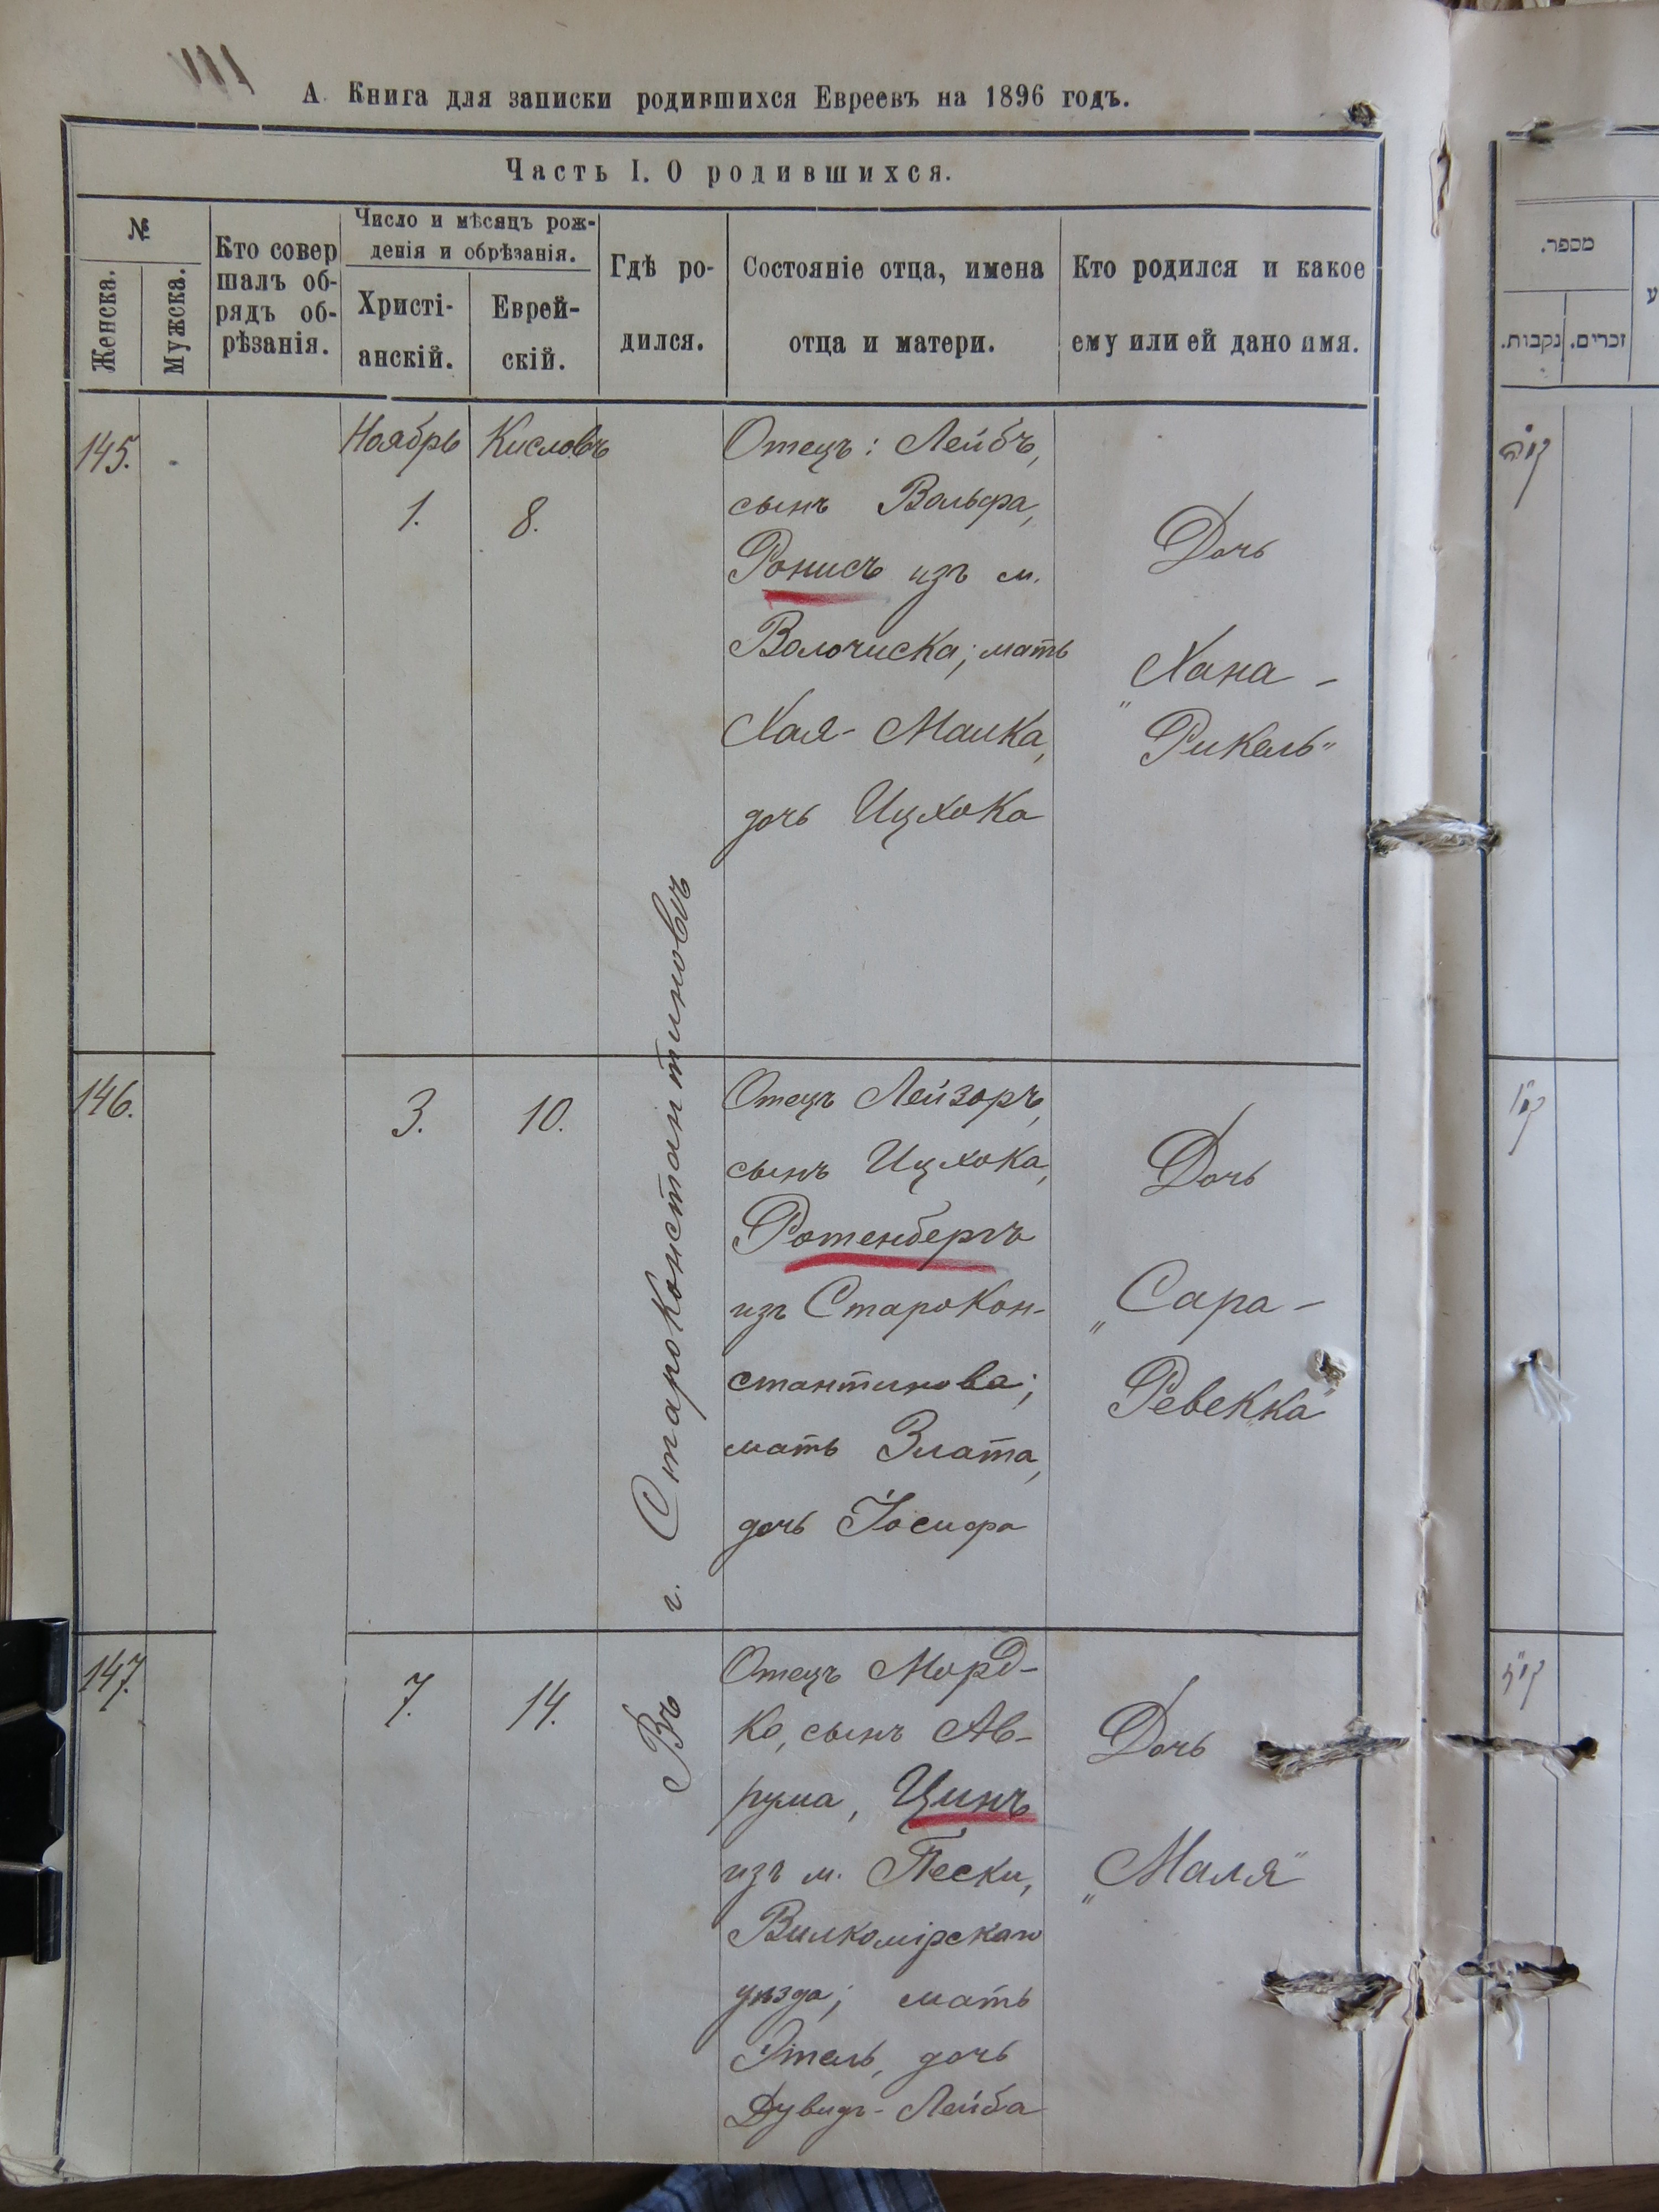 А. Книга для записки родившихся Евреевъ на 1896 годъ.
Часть I. О родившихся.
№
Женска.
Мужска.
Кто совер
шалъ об-
рядъ об-
рѣзанія.
Число и мѣсяцъ рож-
денія и обрѣзанія.
Христі-
анскій.
Еврей-
скій.
Гдѣ ро-
дился.
Состояніе отца, имена
отца и матери.
Кто родился и какое
ему или ей дано имя.
145.
Ноябрь
1.
Кисловъ
8.
Въ г. Староконстантиновъ
Отецъ: Лейбъ,
сынъ Вольфа,
Ронисъ изъ м.
Волочиска; мать
Хая-Малка,
дочь Ицхока
Дочь
„Хана-
Рикель"
146.
3.
10.
Отецъ Лейзоръ,
сынъ Ицхока,
Ротенбергъ
изъ Старокон-
стантинова;
мать Злата,
дочь Іосифа
Дочь
„Сара-
Ревекка"
147.
7.
14.
Отецъ Морд-
ко, сынъ Ав-
рума, Цинъ
изъ м. Пески,
Вилкомірскаго
уѣзда; мать
Этель, дочь
Дувидъ-Лейба
Дочь
„Маля"
מספר.
נקבות.
זכרים.
קמ"ה
קמ"ו
קמ"ז